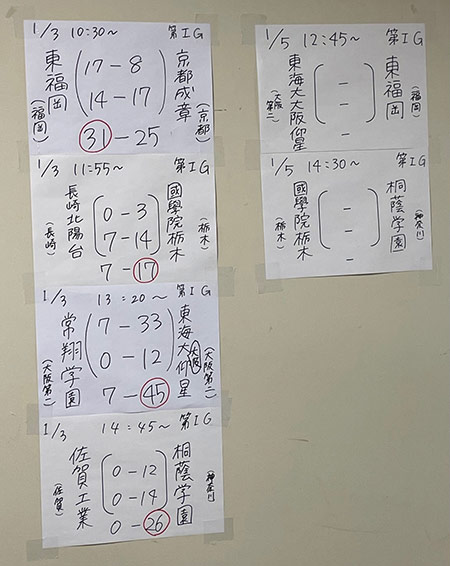 1/3 10:30~ 第IG
東福岡
(福岡)
17-8
14-17
31-25
京都成章
(京都)
1/3 11:55~ 第IG
長崎北陽台
(長崎)
0-3
7-14
7-17
國學院栃木
(栃木)
1/3 13:20~ 第IG
常翔学園
7-33
0-12
7-45
東海大大阪仰星
(大阪第二)
1/3 14:45~ 第IG
佐賀工業
(佐賀)
0-12
0-14
0-26
桐蔭学園
(神奈川)
1/5 12:45~ 第IG
東海大大阪仰星
(大阪第二)
-
-
-
東福岡
(福岡)
1/5 14:30~ 第IG
國學院栃木
(栃木)
-
-
-
桐蔭学園
(神奈川)